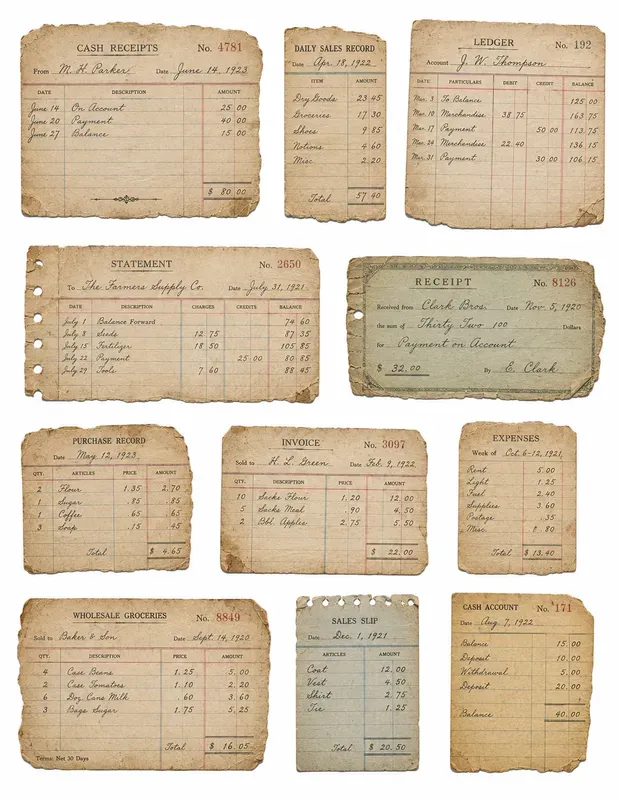 CASH RECEIPTS No. 4781
From M. H. Parker Date June 14, 1923
DATE DESCRIPTION AMOUNT
June 14 On Account 25 00
June 20 Payment 40 00
June 27 Balance 15 00
$ 80 00
DAILY SALES RECORD
Date Apr. 18, 1922
ITEM AMOUNT
Dry Goods 23 45
Groceries 17 30
Shoes 9 85
Notions 4 60
Misc 2 20
Total 57 40
LEDGER No. 192
Account J. W. Thompson
DATE PARTICULARS DEBIT CREDIT BALANCE
Mar. 3 To Balance 125 00
Mar. 10 Merchandise 38 75 163 75
Mar. 17 Payment 50 00 113 75
Mar. 24 Merchandise 22 40 136 15
Mar. 31 Payment 30 00 106 15
STATEMENT No. 2650
To The Farmers Supply Co. Date July 31, 1921
DATE DESCRIPTION CHARGES CREDITS BALANCE
July 1 Balance Forward 74 60
July 8 Seeds 12 75 87 35
July 15 Fertilizer 18 50 105 85
July 22 Payment 25 00 80 85
July 29 Tools 7 60 88 45
RECEIPT No. 8126
Received from Clark Bros. Date Nov. 5, 1920
the sum of Thirty Two 100 Dollars
for Payment on Account
$ 32.00 By E. Clark
PURCHASE RECORD
Date May 12, 1923
QTY. ARTICLES PRICE AMOUNT
2 Flour 1.35 2.70
1 Sugar .85 .85
1 Coffee .65 .65
3 Soap .15 .45
Total $ 4.65
INVOICE No. 3097
Sold to H. L. Green Date Feb. 9, 1922
QTY. DESCRIPTION PRICE AMOUNT
10 Sacks Flour 1.20 12.00
5 Sacks Meal .90 4.50
2 Bbl. Apples 2.75 5.50
$ 22.00
EXPENSES
Week of Oct. 6-12, 1921
Rent 5.00
Light 1.25
Fuel 2.40
Supplies 3.60
Postage .35
Misc. .80
Total $ 13.40
WHOLESALE GROCERIES No. 8849
Sold to Baker & Son Date Sept. 14, 1920
QTY. DESCRIPTION PRICE AMOUNT
4 Case Beans 1.25 5.00
2 Case Tomatoes 1.10 2.20
6 Doz. Cans Milk .60 3.60
3 Bags Sugar 1.75 5.25
Total $ 16.05
Terms: Net 30 Days
SALES SLIP
Date Dec. 1, 1921
ARTICLES AMOUNT
Coat 12.00
Vest 4.50
Shirt 2.75
Tie 1.25
Total $ 20.50
CASH ACCOUNT No. 171
Date Aug. 7, 1922
Balance 15.00
Deposit 10.00
Withdrawal 5.00
Deposit 20.00
Balance 40.00